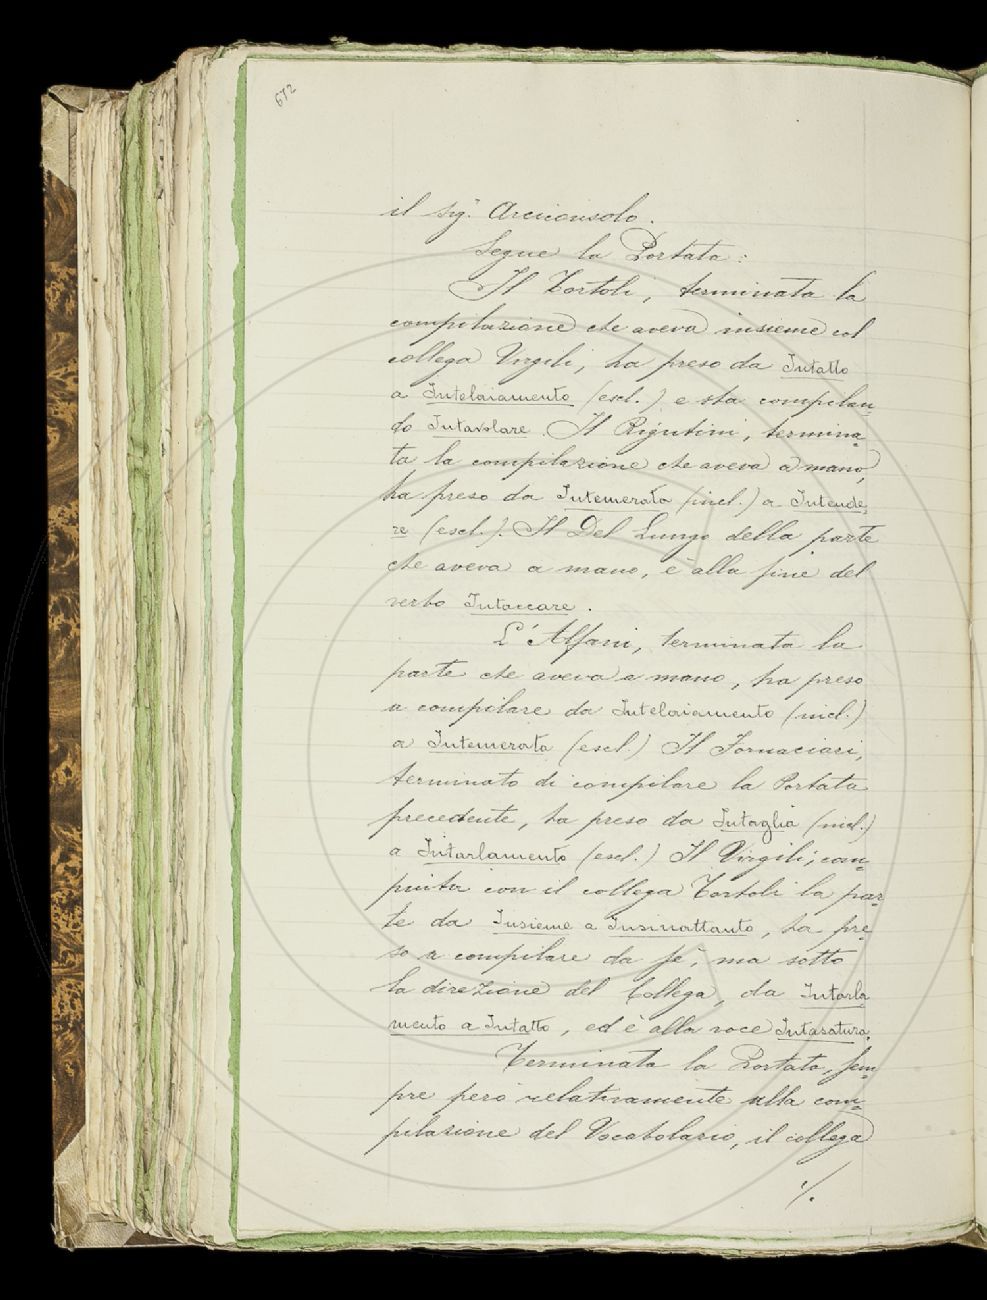 672
il Sig.r Arciconsolo.
Segue la Portata:
Il Tortoli, terminata la
compilazione che aveva insieme col
collega Virgili, ha preso da Intatto
a Intelaiamento (escl.) e sta compilan=
do Intavolare. Il Rigutini, termina=
ta la compilazione che aveva a mano,
ha preso da Intemerata (incl.) a Intende=
re (escl.). Il Del Lungo della parte
che aveva a mano, è alla fine del
verbo Intaccare.
L'Alfani, terminata la
parte che aveva a mano, ha preso
a compilare da Intelaiamento (incl.)
a Intemerata (escl.) Il Fornaciari,
terminato di compilare la Portata
precedente, ha preso da Intaglia (incl.)
a Intarlamento (escl.) Il Virgili, com=
piuta con il collega Tortoli la par=
te da Insieme a Insinattanto, ha pre=
so a compilare da sè, ma sotto
la direzione del Collega, da Intarla=
mento a Intatto, ed è alla voce Intasatura.
Terminata la Portata, sem=
pre però relativamente alla com=
pilazione del Vocabolario, il collega
./.